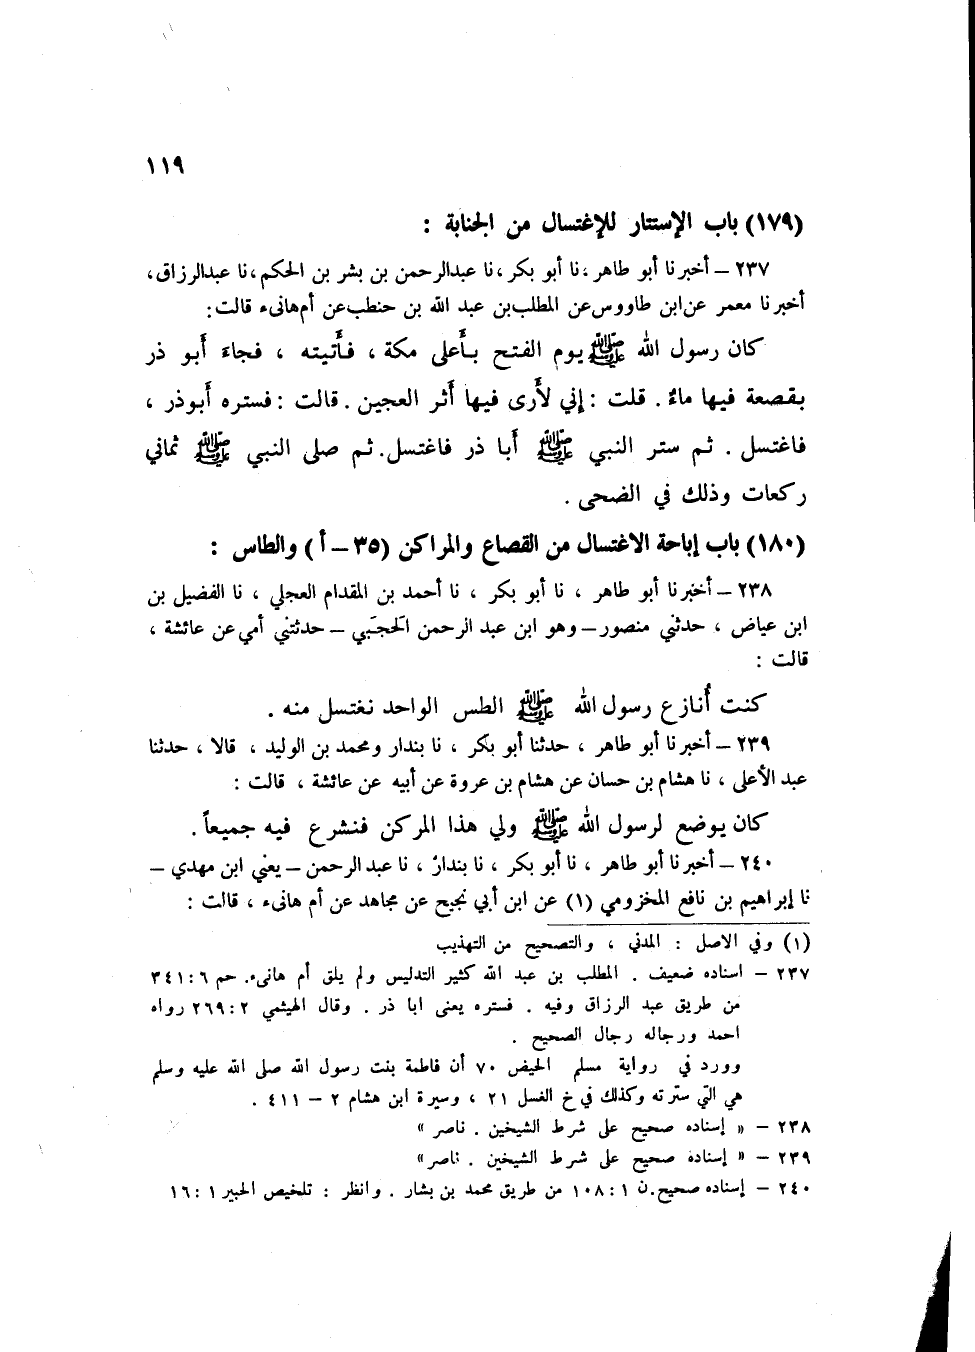 ١١٩
(١٧٩) باب الإستتار للإغتسال من الجنابة :
٢٣٧ – أخبرنا أبو طاهر ،نا أبو بكر،نا عبدالرحمن بن بشر بن الحكم،نا عبدالرزاق،
أخبرنا معمر عن ابن طاووس عن المطلب بن عبد الله بن حنطب عن أم هانىء قالت:
كان رسول الله ﷺ يوم الفتح بأعلى مكة ، فأتيته ، فجاءَ أبو ذر
بقصعة فيها ماءٌ . قلت : إني لأرى فيها أثر العجين . قالت : فستره أبوذر ،
فاغتسل . ثم ستر النبي ﷺ أبا ذر فاغتسل. ثم صلى النبي ﷺ ثماني
ركعات وذلك في الضحى .
(١٨٠) باب إباحة الاغتسال من القصاع والمراكن (٣٥ – أ) والطاس :
٢٣٨ – أخبرنا أبو طاهر ، نا أبو بكر ، نا أحمد بن المقدام العجلي ، نا الفضيل بن
ابن عياض ، حدثني منصور – وهو ابن عبد الرحمن الحَجَبي – حدثتني أمي عن عائشة ،
قالت :
كنت أُنازع رسول الله ﷺ الطس الواحد نغتسل منه .
٢٣٩ – أخبرنا أبو طاهر ، حدثنا أبو بكر ، نا بندار ومحمد بن الوليد ، قالا ، حدثنا
عبد الأعلى ، نا هشام بن حسان عن هشام بن عروة عن أبيه عن عائشة ، قالت :
كان يوضع لرسول الله ﷺ ولي هذا المركن فنشرع فيه جميعاً .
٢٤٠ – أخبرنا أبو طاهر ، نا أبو بكر ، نا بندارٌ ، نا عبد الرحمن – يعني ابن مهدي –
نا إبراهيم بن نافع المخزومي (١) عن ابن أبي نجيح عن مجاهد عن أم هانىء ، قالت :
(١) وفي الاصل : المدني ، والتصحيح من التهذيب
٢٣٧ – اسناده ضعيف . المطلب بن عبد الله كثير التدليس ولم يلق أم هانىء. حم ٦ : ٣٤١
من طريق عبد الرزاق وفيه . فستره يعنى ابا ذر . وقال الهيثمي ٢ : ٢٦٩ رواه
احمد ورجاله رجال الصحيح .
وورد في رواية مسلم الحيض ٧٠ أن فاطمة بنت رسول الله صلى الله عليه وسلم
هي التي سترته وكذلك في خ الغسل ٢١ ، وسيرة ابن هشام ٢ – ٤١١ .
٢٣٨ – « إسناده صحيح على شرط الشيخين . ناصر »
٢٣٩ – « إسناده صحيح على شرط الشيخين . ناصر »
٢٤٠ – إسناده صحيح. ن ١ : ١٠٨ من طريق محمد بن بشار . وانظر : تلخيص الحبير ١ : ١٦